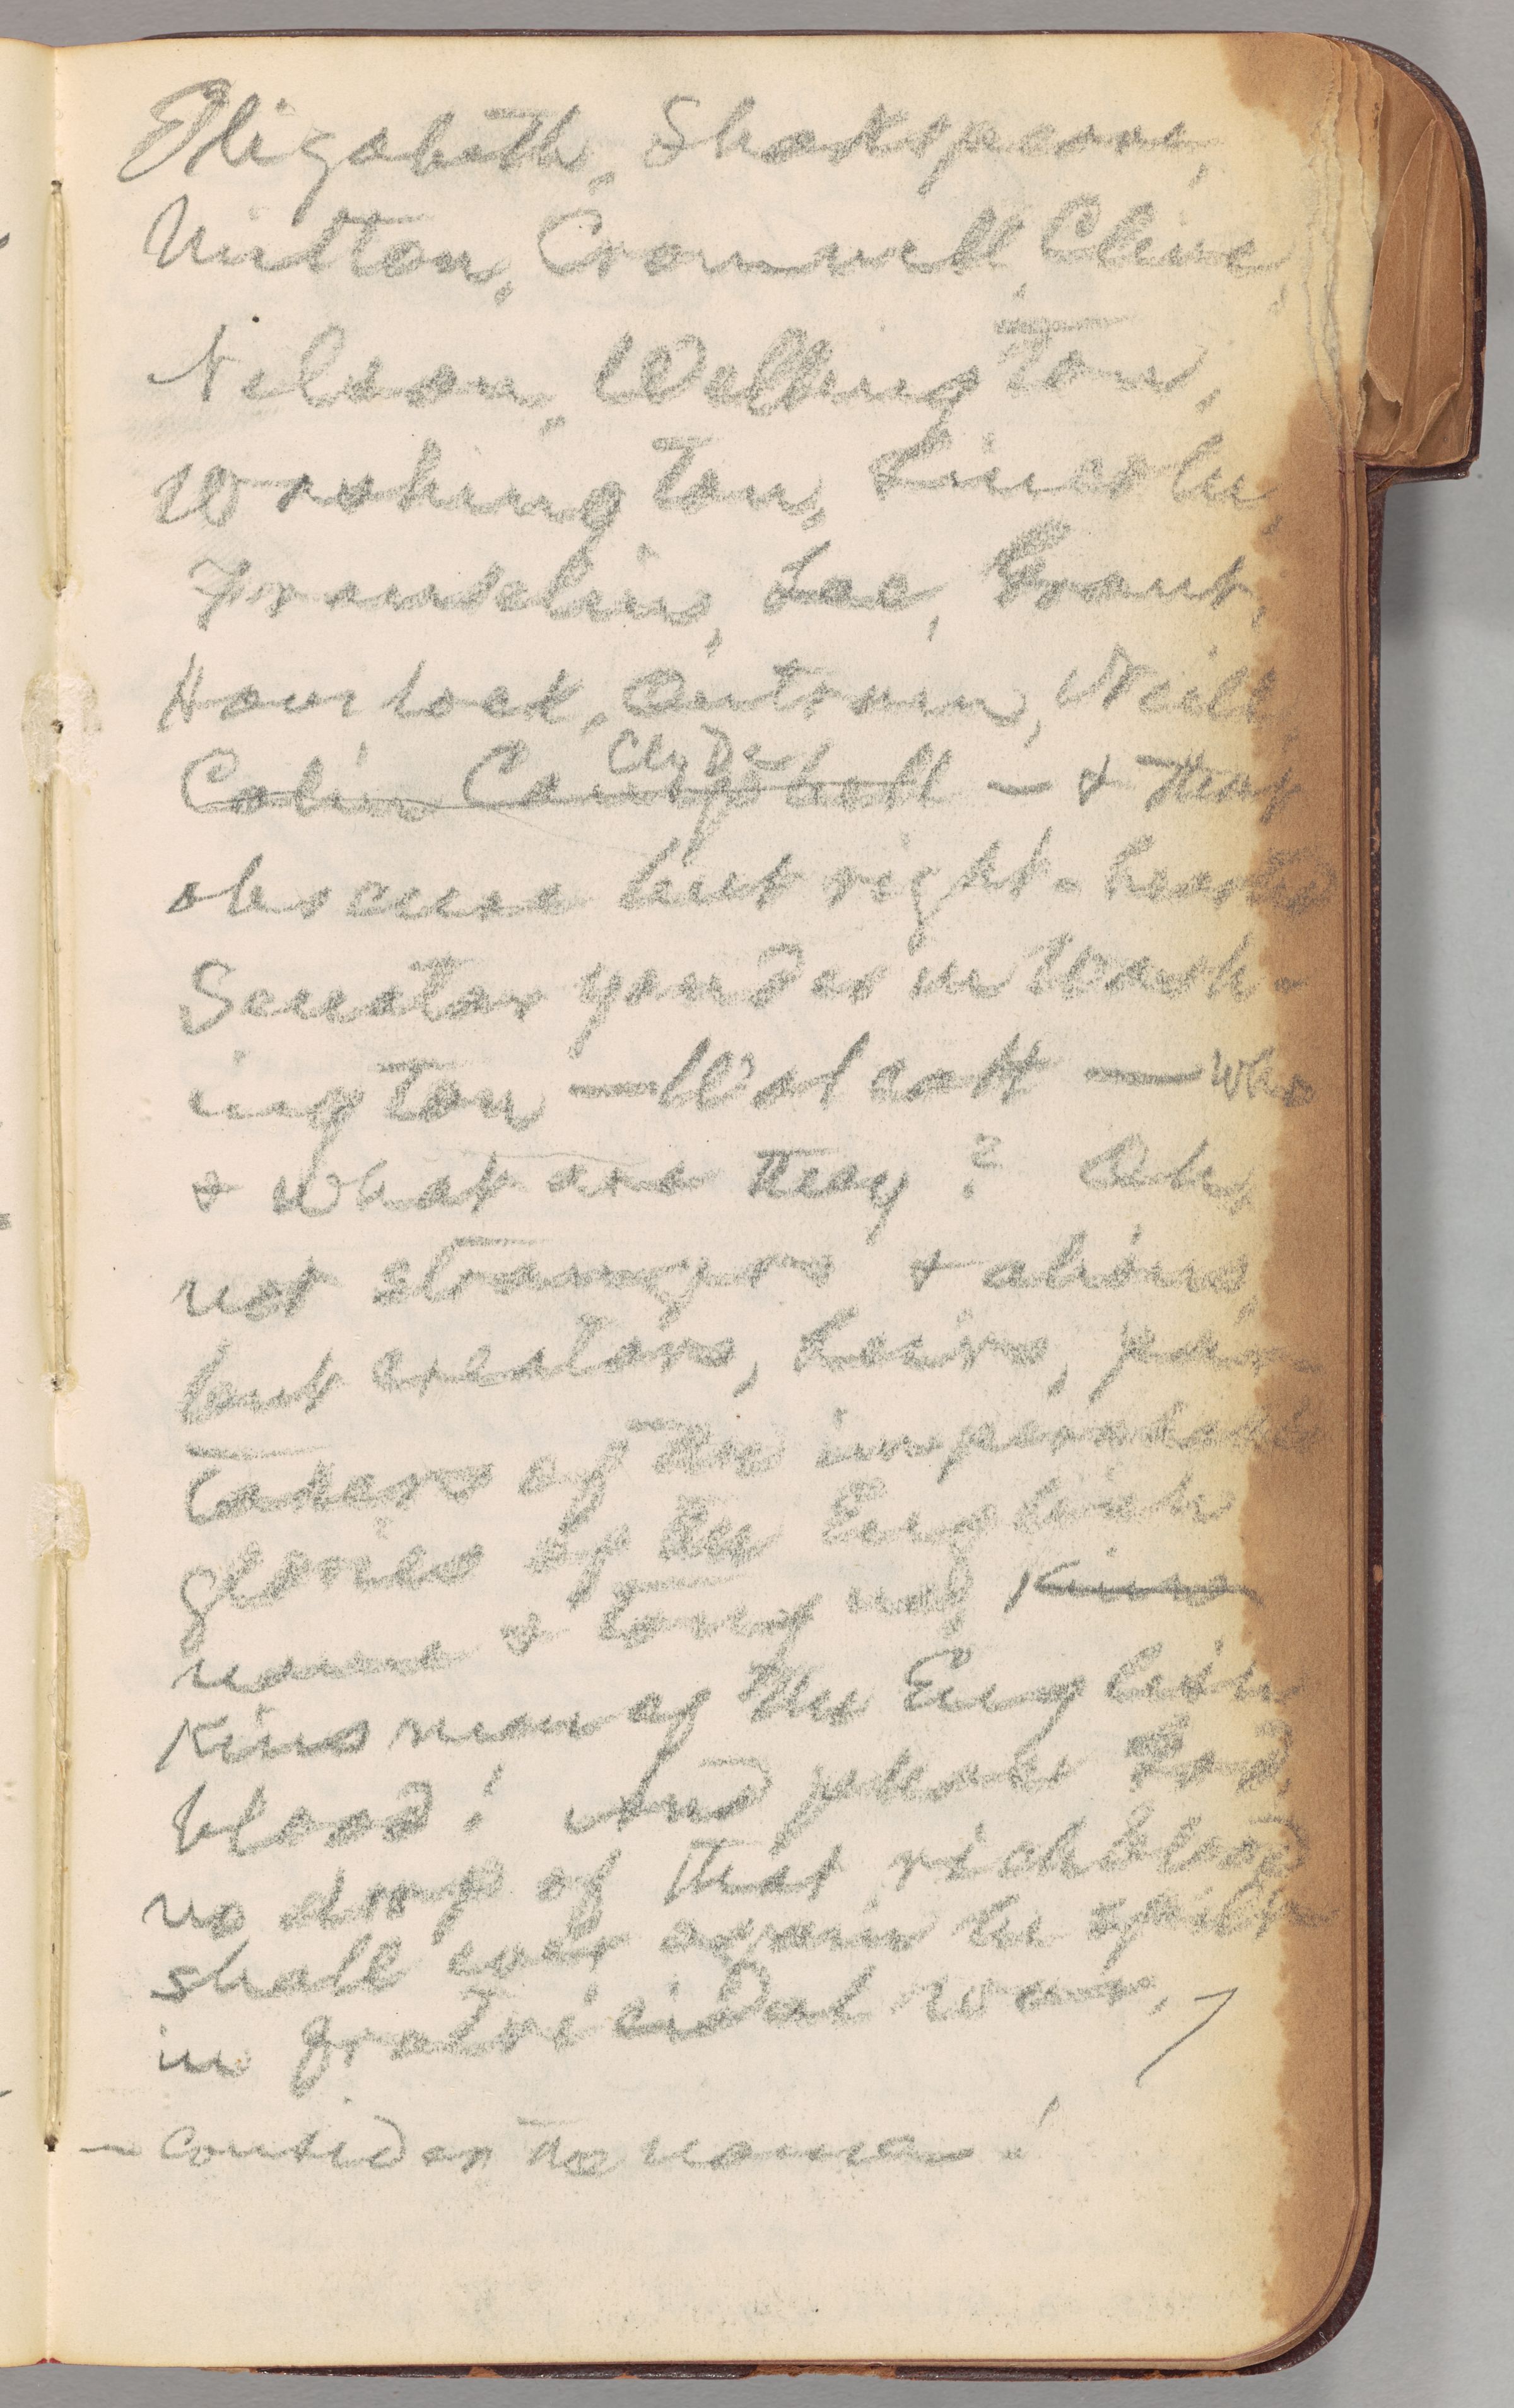 Elizabeth, Shakspeare,
Milton, Cromwell, Clive,
Nelson, Wellington,
Washington, Lincoln,
Franklin, Lee, Grant,
Havelock, Outram, Neill,
Clyde
Colin Campbell — & that
obscure but right-hearted
Senator yonder in Wash-
ington — Wolcott — who
& what are they? Oh,
not strangers & aliens,
but creators, heirs, par-
takers of the imperishable
glories of the English
name & tongue, Kins
Kinsmen of the English
blood! And please God,
no drop of that rich blood
shall ever again be spilt
in fratricidal war,
— Consider the name!